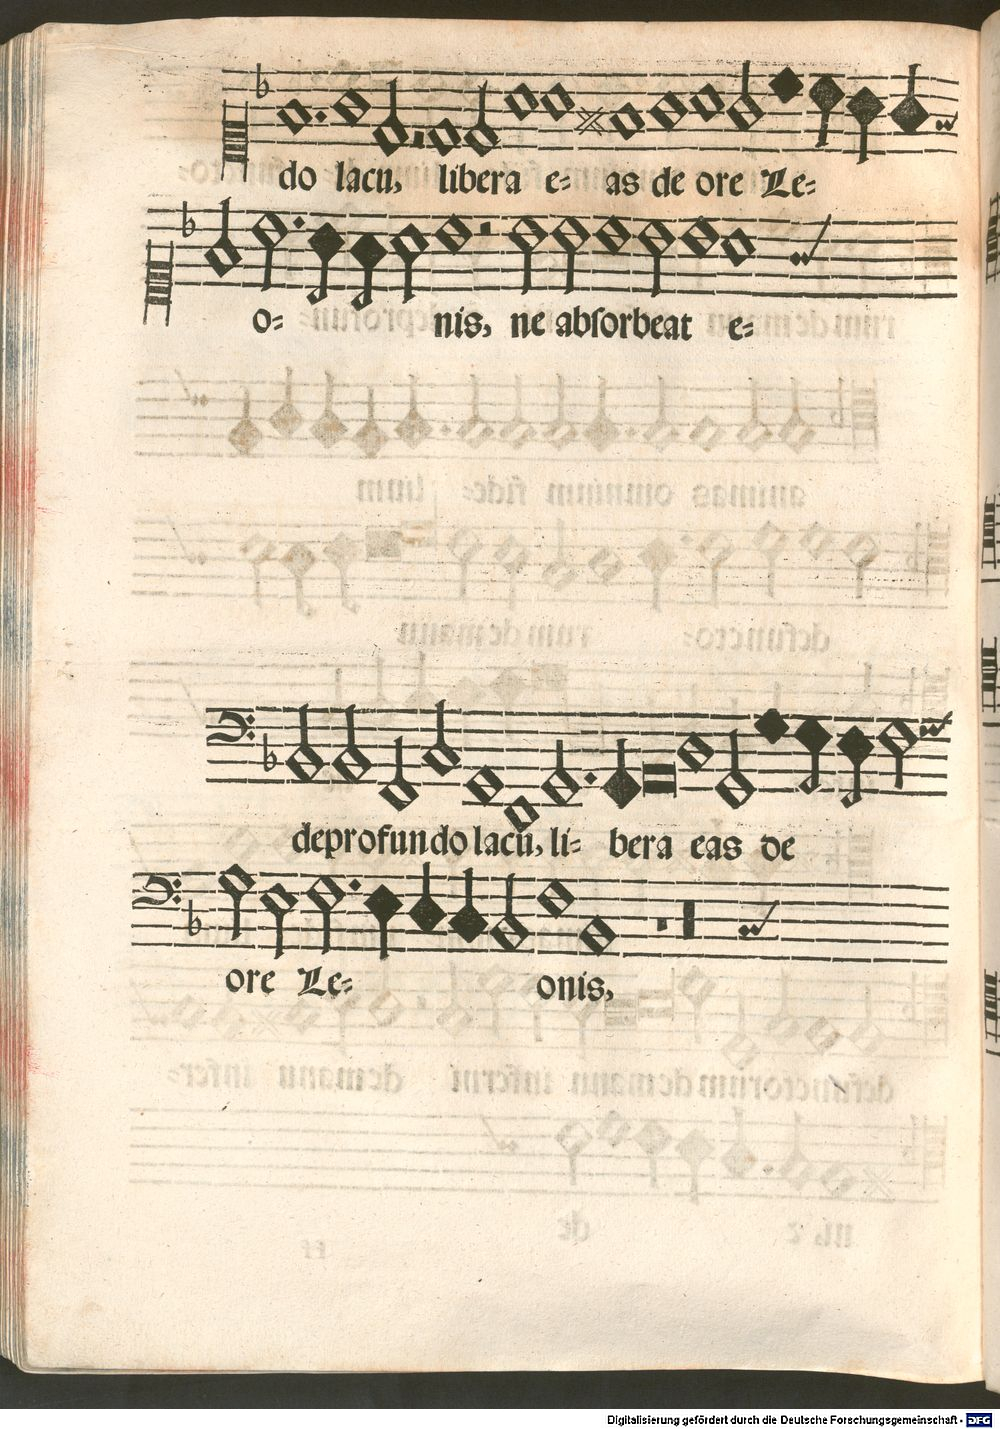 do lacu, libera e- as de ore Le-
o- nis, ne absorbeat e-
deprofundo lacu, li- bera eas de
ore Le- onis,
Digitalisierung gefördert durch die Deutsche Forschungsgemeinschaft - DFG